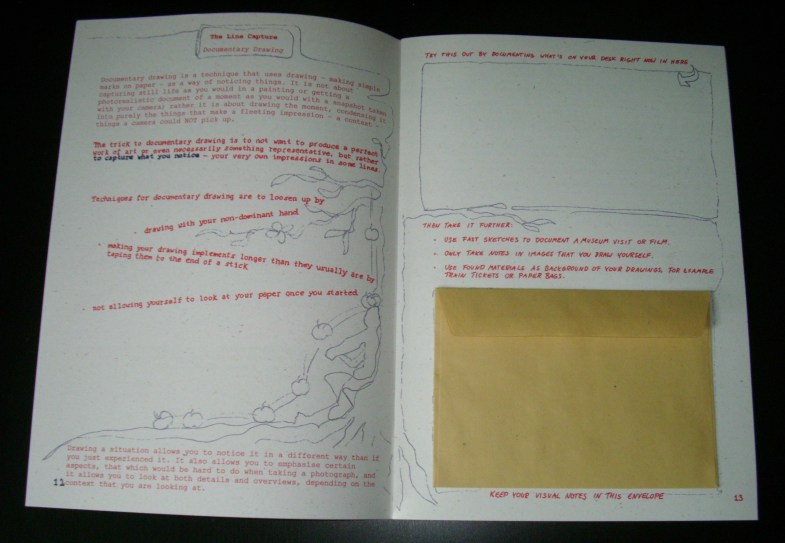 The Line Capture
Documentary Drawing
Documentary drawing is a technique that uses drawing - making simple
marks on paper - as a way of noticing things. It is not about
capturing still life as you would in a painting or getting a
photorealistic document of a moment as you would with a snapshot taken
with your camera; rather it is about drawing the moment, condensing it
into purely the things that make a fleeting impression - a context -
things a camera could NOT pick up.
The trick to documentary drawing is to not want to produce a perfect
work of art or even necessarily something representative, but rather
to capture what you notice - your very own impressions in some lines.
Techniques for documentary drawing are to loosen up by
- drawing with your non-dominant hand
- making your drawing implements longer than they usually are by
taping them to the end of a stick
- not allowing yourself to look at your paper once you started
Drawing a situation allows you to notice it in a different way than if
you just experienced it. It also allows you to emphasise certain
aspects, that which would be hard to do when taking a photograph, and
it allows you to look at both details and overviews, depending on the
context that you are looking at.
12
TRY THIS OUT BY DOCUMENTING WHAT'S ON YOUR DESK RIGHT NOW IN HERE
THEN TAKE IT FURTHER:
- USE FAST SKETCHES TO DOCUMENT A MUSEUM VISIT OR FILM.
- ONLY TAKE NOTES IN IMAGES THAT YOU DRAW YOURSELF.
- USE FOUND MATERIALS AS BACKGROUND OF YOUR DRAWINGS, FOR EXAMPLE
TRAIN TICKETS OR PAPER BAGS.
KEEP YOUR VISUAL NOTES IN THIS ENVELOPE
13